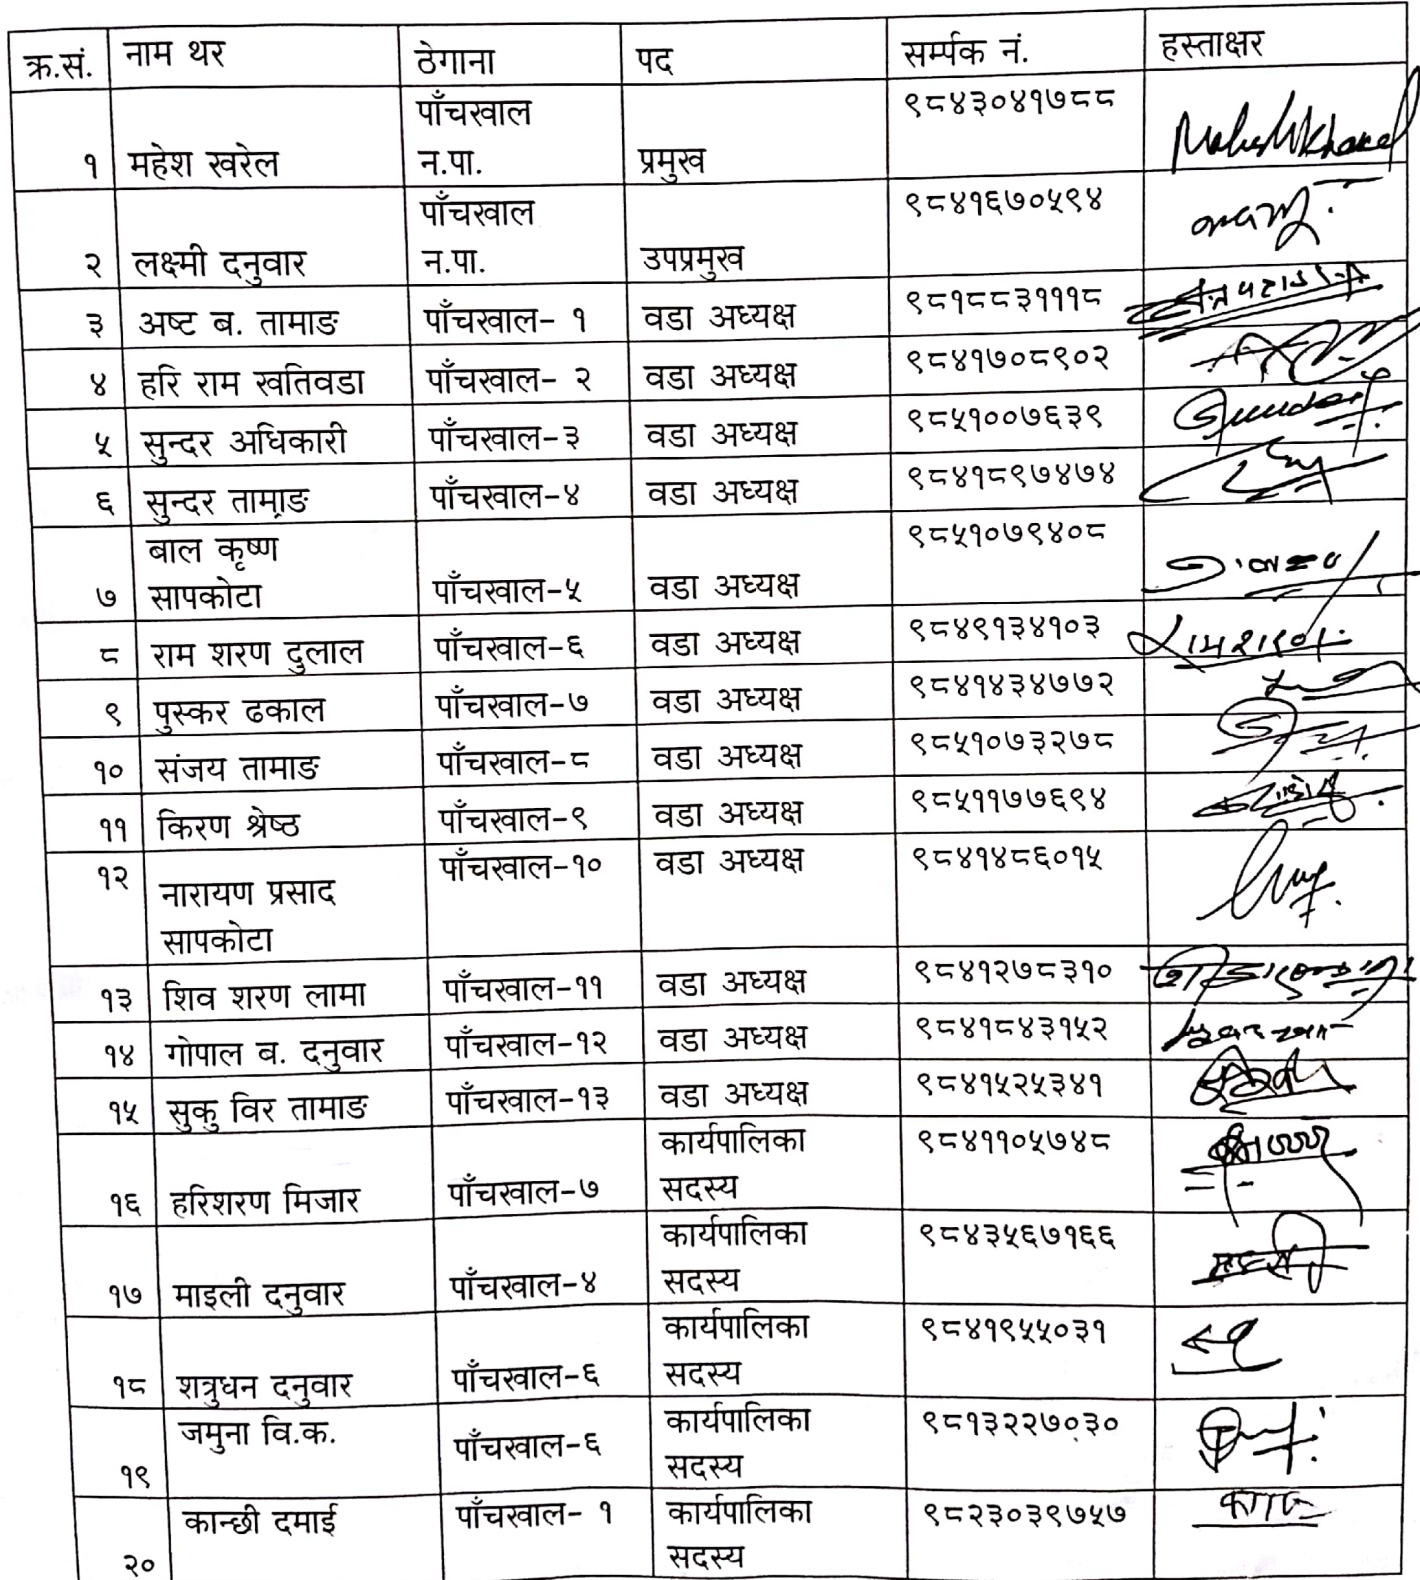 क्र.सं. नाम थर ठेगाना पद सर्म्पक नं. हस्ताक्षर
१ महेश खरेल पाँचखाल न.पा. प्रमुख ९८४३०४१७८८ Mahesh Kharel
२ लक्ष्मी दनुवार पाँचखाल न.पा. उपप्रमुख ९८४१६७०५९४
३ अष्ट ब. तामाङ पाँचखाल- १ वडा अध्यक्ष ९८१८८३१११८
४ हरि राम खतिवडा पाँचखाल- २ वडा अध्यक्ष ९८४१७०८९०२
५ सुन्दर अधिकारी पाँचखाल-३ वडा अध्यक्ष ९८५१००७६३९
६ सुन्दर तामाङ पाँचखाल-४ वडा अध्यक्ष ९८४१८९७४७४
७ बाल कृष्ण सापकोटा पाँचखाल-५ वडा अध्यक्ष ९८५१०७९४०८
८ राम शरण दुलाल पाँचखाल-६ वडा अध्यक्ष ९८४९१३४१०३ रामशरण
९ पुस्कर ढकाल पाँचखाल-७ वडा अध्यक्ष ९८४१४३४७७२
१० संजय तामाङ पाँचखाल-८ वडा अध्यक्ष ९८५१०७३२७८
११ किरण श्रेष्ठ पाँचखाल-९ वडा अध्यक्ष ९८५११७७६९४
१२ नारायण प्रसाद सापकोटा पाँचखाल-१० वडा अध्यक्ष ९८४१४८६०१५
१३ शिव शरण लामा पाँचखाल-११ वडा अध्यक्ष ९८४१२७८३१०
१४ गोपाल ब. दनुवार पाँचखाल-१२ वडा अध्यक्ष ९८४१८४३१५२
१५ सुकु विर तामाङ पाँचखाल-१३ वडा अध्यक्ष ९८४१५२५३४१
१६ हरिशरण मिजार पाँचखाल-७ कार्यपालिका सदस्य ९८४११०५७४८
१७ माइली दनुवार पाँचखाल-४ कार्यपालिका सदस्य ९८४३५६७१६६
१८ शत्रुधन दनुवार पाँचखाल-६ कार्यपालिका सदस्य ९८४१९५५०३१
१९ जमुना वि.क. पाँचखाल-६ कार्यपालिका सदस्य ९८१३२२७०३०
२० कान्छी दमाई पाँचखाल- १ कार्यपालिका सदस्य ९८२३०३९७५७